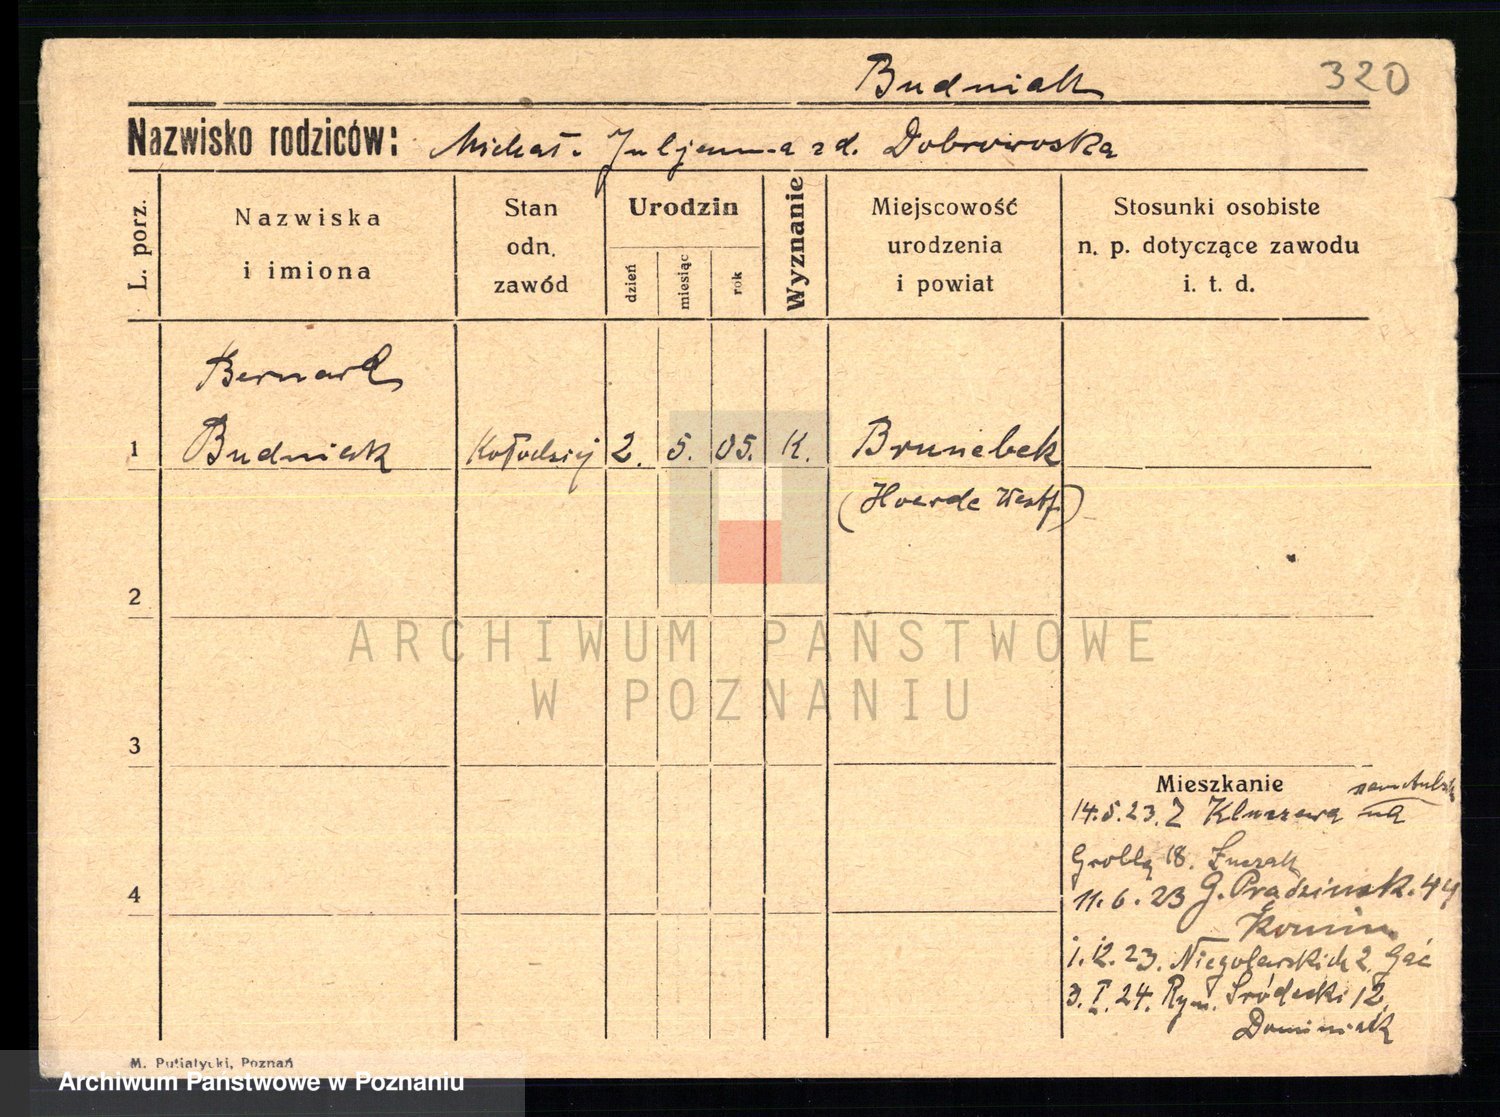 Budniak 320
Nazwisko rodziców: Michał. Juljanna zd. Dobrowoska
L. porz.
Nazwiska
i imiona
Stan
odn.
zawód
Urodzin
dzień
miesiąc
rok
Wyznanie
Miejscowość
urodzenia
i powiat
Stosunki osobiste
n. p. dotyczące zawodu
i. t. d.
Bernard
1 Budniak Kołodziej 2. 5. 05. K. Brunebek
(Hoerde Westf.)
2
ARCHIWUM PAŃSTWOWE
W POZNANIU
3
Mieszkanie
14.5.23. Z na
Grobla 18.
4
11.6.23 G. Prądzinsk. 44
1.12.23. Niegolewskich 2. Gać
3.I.24. Ryn. Sródecki 12.
Dominiak
M. Putiatycki, Poznań
Archiwum Państwowe w Poznaniu